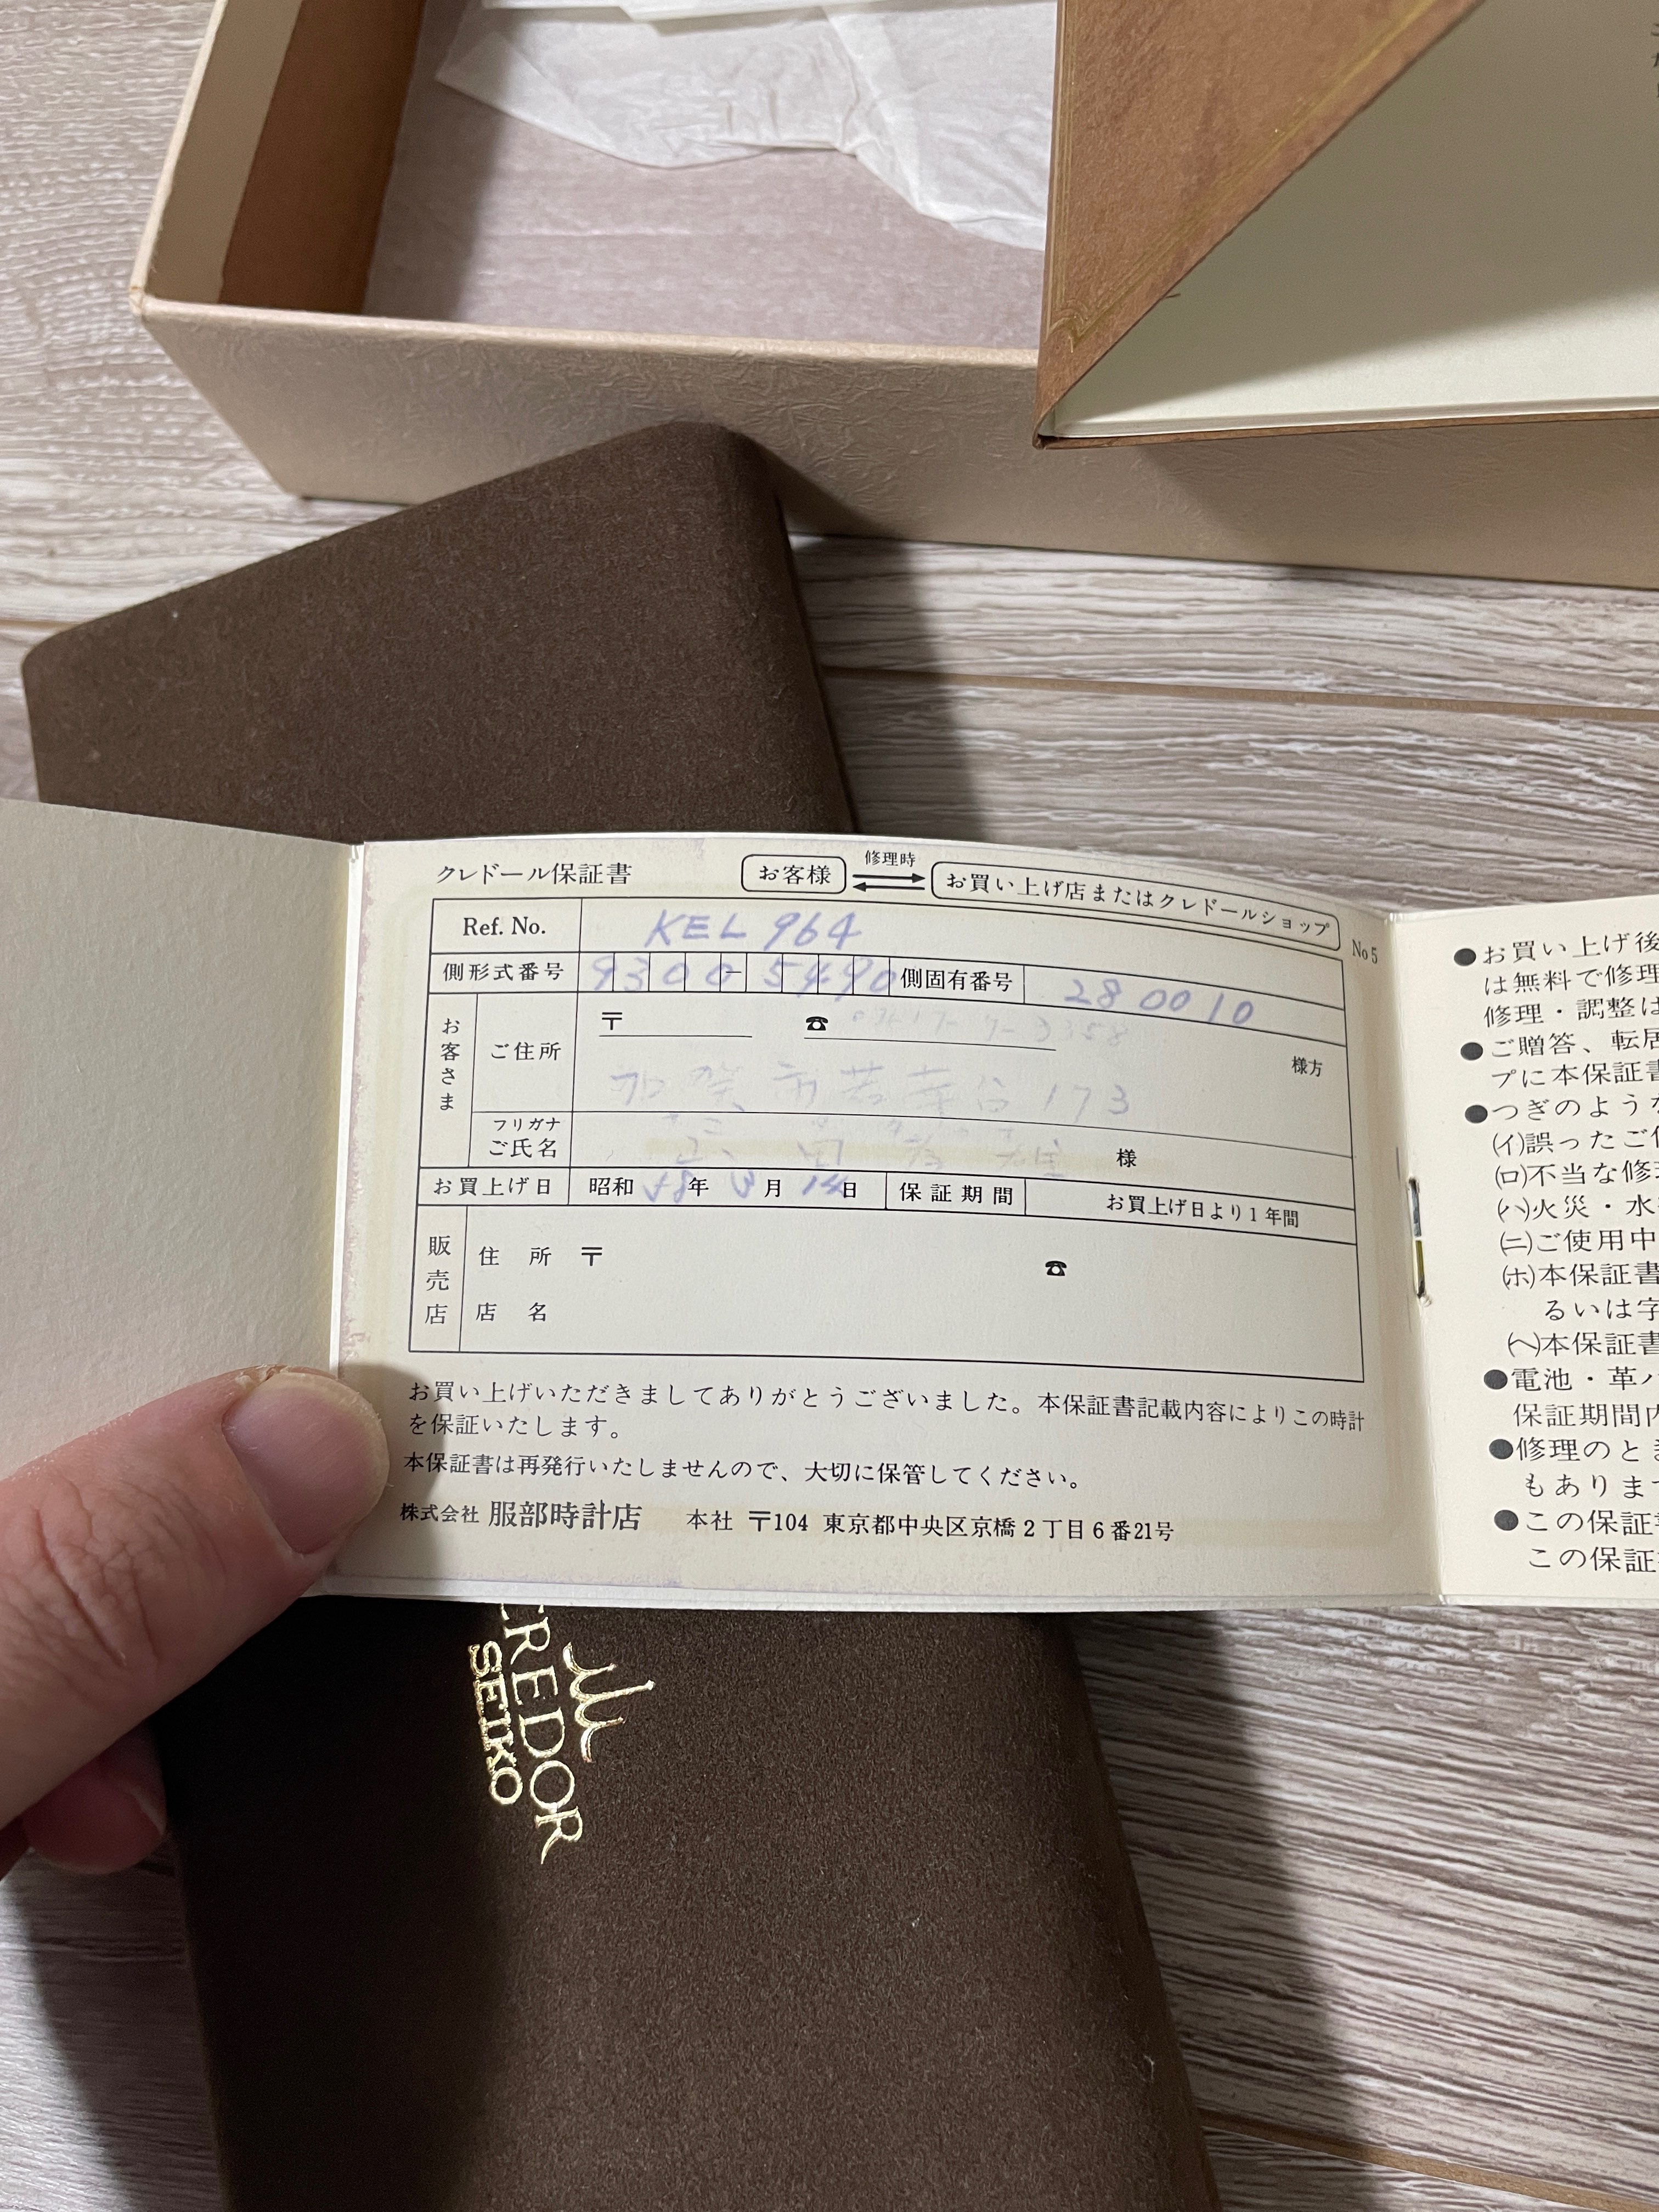 クレドール保証書
お客様 修理時 お買い上げ店またはクレドールショップ
No 5
Ref. No. KEL 964
側形式番号 9300-5490 側固有番号 280010
お客さま
ご住所 〒 ☎
様方
加賀市若葉台173
フリガナ
ご氏名 様
お買上げ日 昭和58年3月14日 保証期間 お買上げ日より1年間
販売店
住所 〒 ☎
店名
お買い上げいただきましてありがとうございました。本保証書記載内容によりこの時計
を保証いたします。
本保証書は再発行いたしませんので、大切に保管してください。
株式会社 服部時計店 本社 〒104 東京都中央区京橋2丁目6番21号
●お買い上げ後
は無料で修理
修理・調整は
●ご贈答、転居
プに本保証書
●つぎのような
(イ)誤ったご使
(ロ)不当な修理
(ハ)火災・水
(ニ)ご使用中
(ホ)本保証書
るいは字
(ヘ)本保証書
●電池・革バ
保証期間内
●修理のとき
もあります
●この保証書
この保証
CREDOR
SEIKO